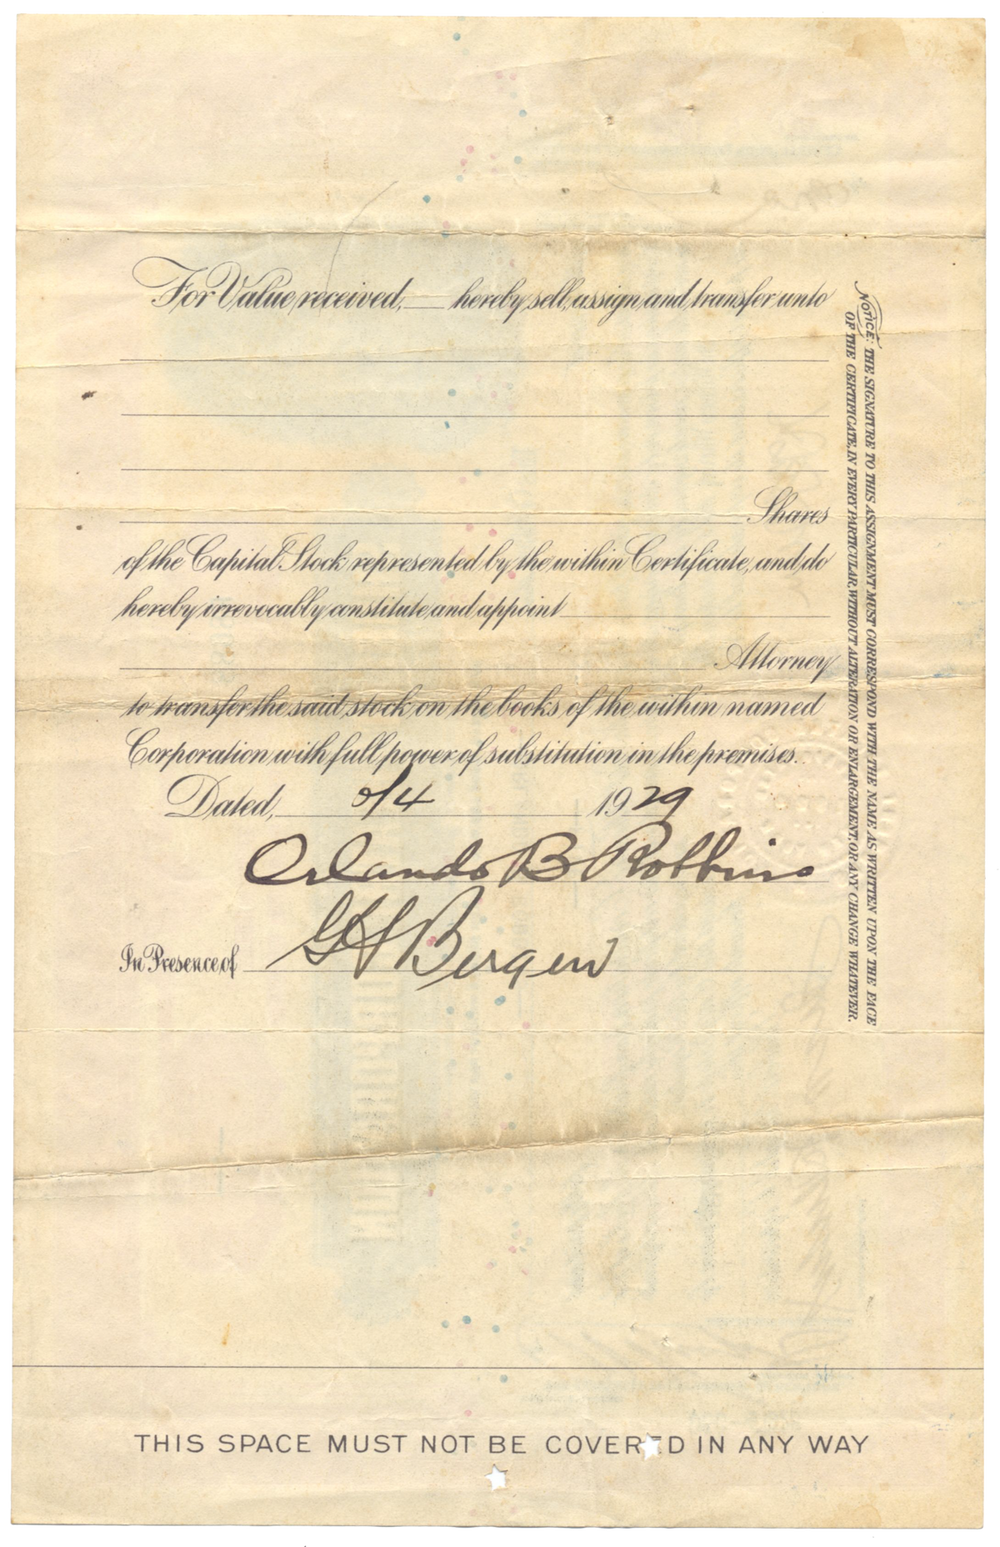 For Value received, ___ hereby sell, assign and transfer unto
Shares
of the Capital Stock represented by the within Certificate, and do
hereby irrevocably constitute and appoint
Attorney
to transfer the said stock on the books of the within named
Corporation with full power of substitution in the premises.
Dated, 2/4 1929
Orlando B Robbins
In Presence of G H Bergen
NOTICE: THE SIGNATURE TO THIS ASSIGNMENT MUST CORRESPOND WITH THE NAME AS WRITTEN UPON THE FACE
OF THE CERTIFICATE, IN EVERY PARTICULAR, WITHOUT ALTERATION OR ENLARGEMENT, OR ANY CHANGE WHATEVER.
THIS SPACE MUST NOT BE COVERED IN ANY WAY